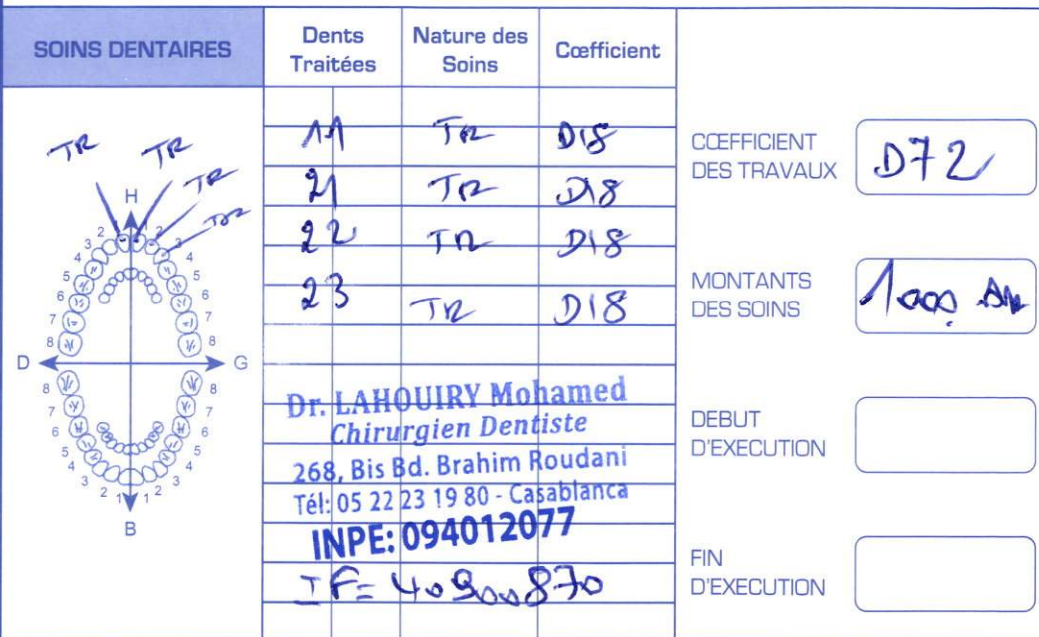 SOINS DENTAIRES
Dents Traitées
Nature des Soins
Cœfficient
TR TR
TR
TR
H
D G
B
11 TR D18
21 TR D18
22 TR D18
23 TR D18
Dr. LAHOUIRY Mohamed
Chirurgien Dentiste
268, Bis Bd. Brahim Roudani
Tél: 05 22 23 19 80 - Casablanca
INPE: 094012077
IF= 40900870
CŒFFICIENT DES TRAVAUX D72
MONTANTS DES SOINS 1000
DEBUT D'EXECUTION
FIN D'EXECUTION